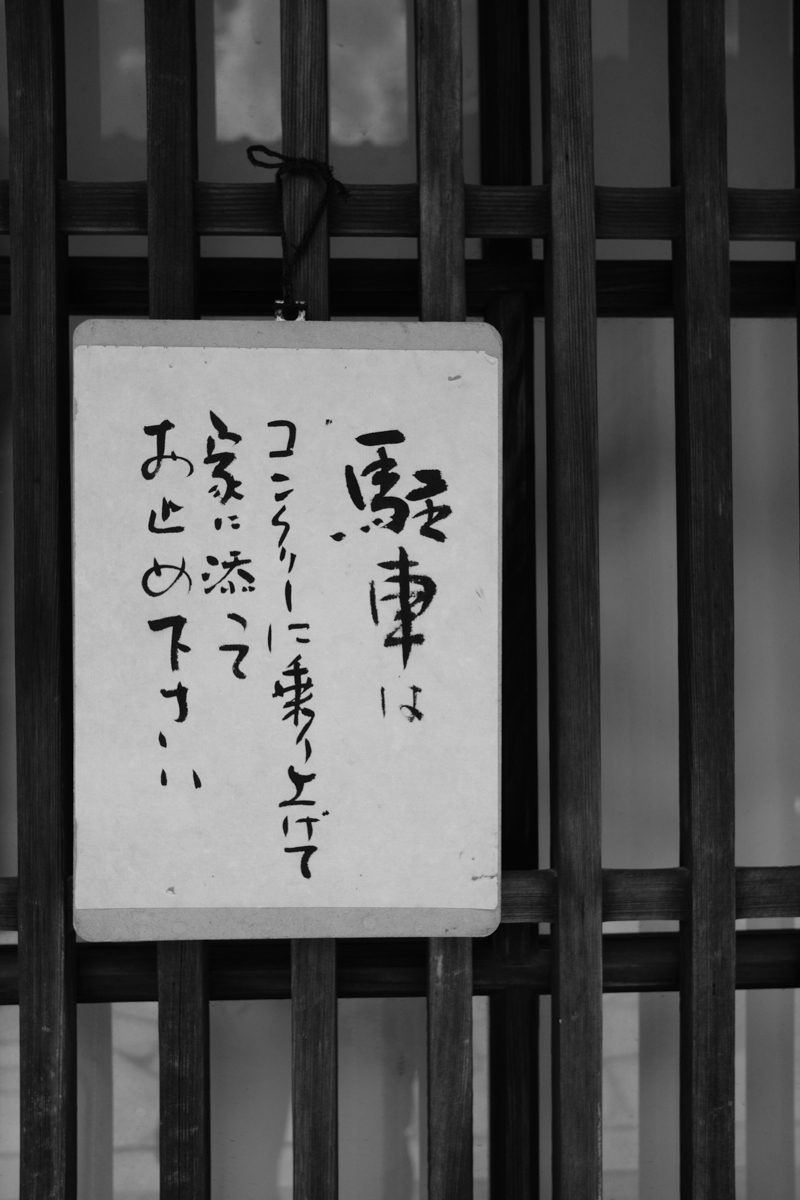 駐車は
コンクリーに乗り上げて
家に添って
お止め下さい